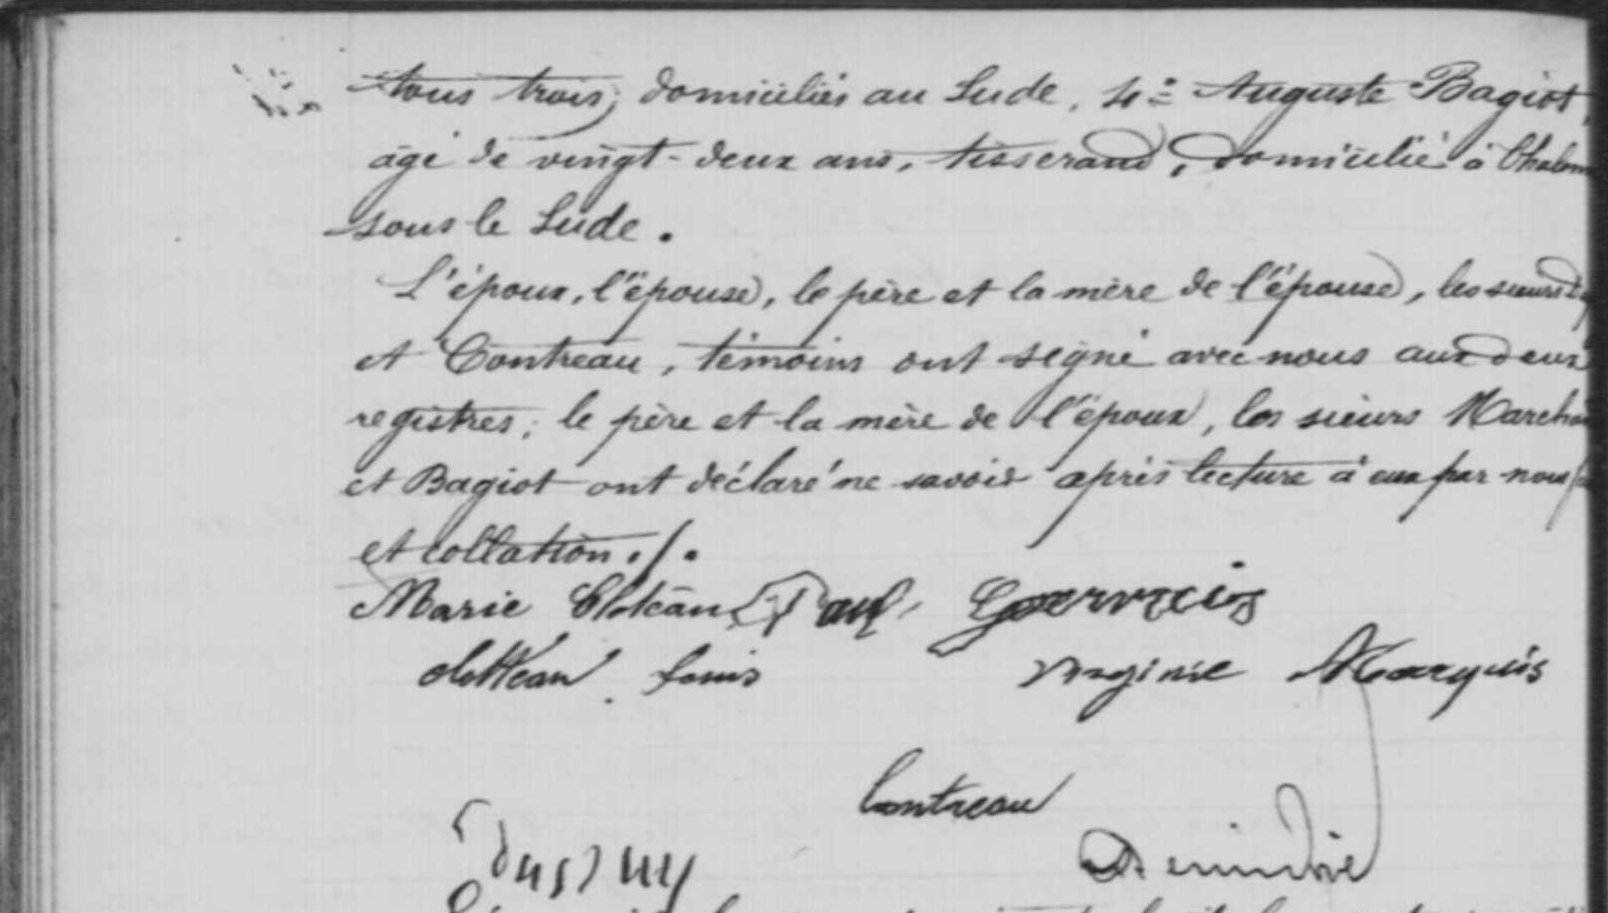 tous trois, domiciliés au Lude, 4º Auguste Bagiot,
âgé de vingt-deux ans, tisserand, domicilié à
sous le Lude.
L'époux, l'épouse, le père et la mère de l'épouse, les sieurs
et Contreau, témoins ont signé avec nous aux deux
registres; le père et la mère de l'époux, les sieurs
et Bagiot ont déclaré ne savoir après lecture à eux par nous
et collation ./.
Marie Cloteau Paul Gervais
Clotteau Louis Virginie Marquis
Contreau